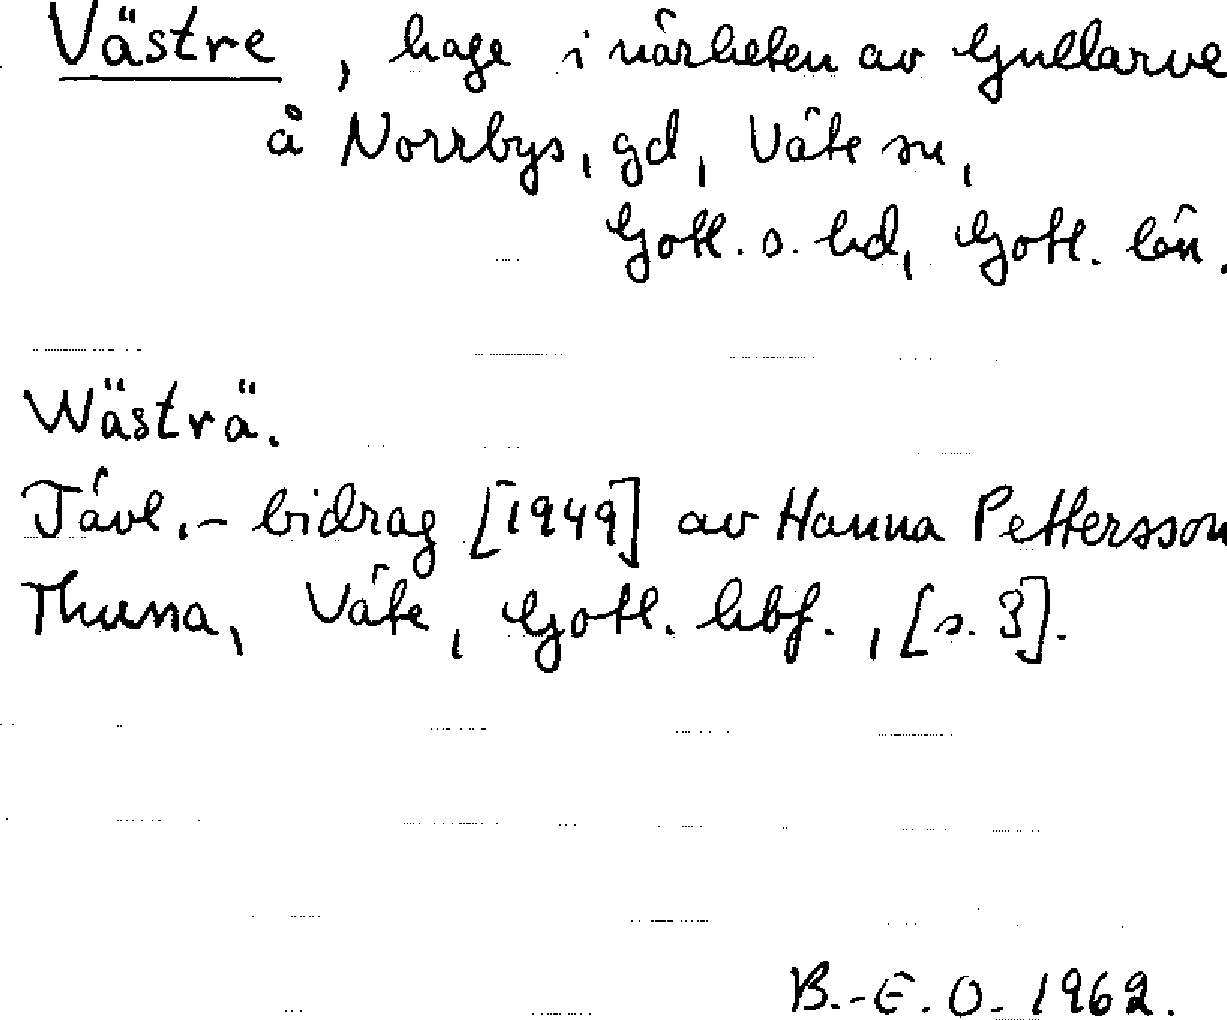 Västre, hage i närheten av Gullarve
å Norrbys, gd, Väte sn,
Gotl. s. hd, Gotl. län.
Wästrä.
Tävl.-bidrag [1949] av Hanna Pettersson
Thussa, Väte, Gotl. hbf., [s. 3].
B.-E. O. 1962.